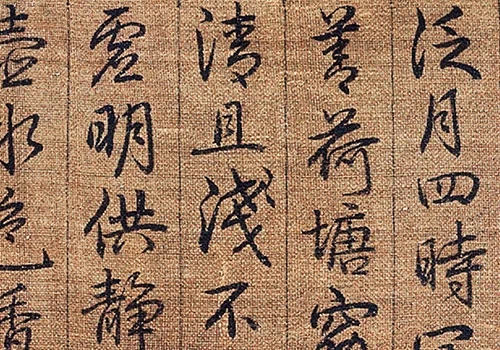 泛月四時
荷塘
清且淺不
虛明供靜
壺水色香